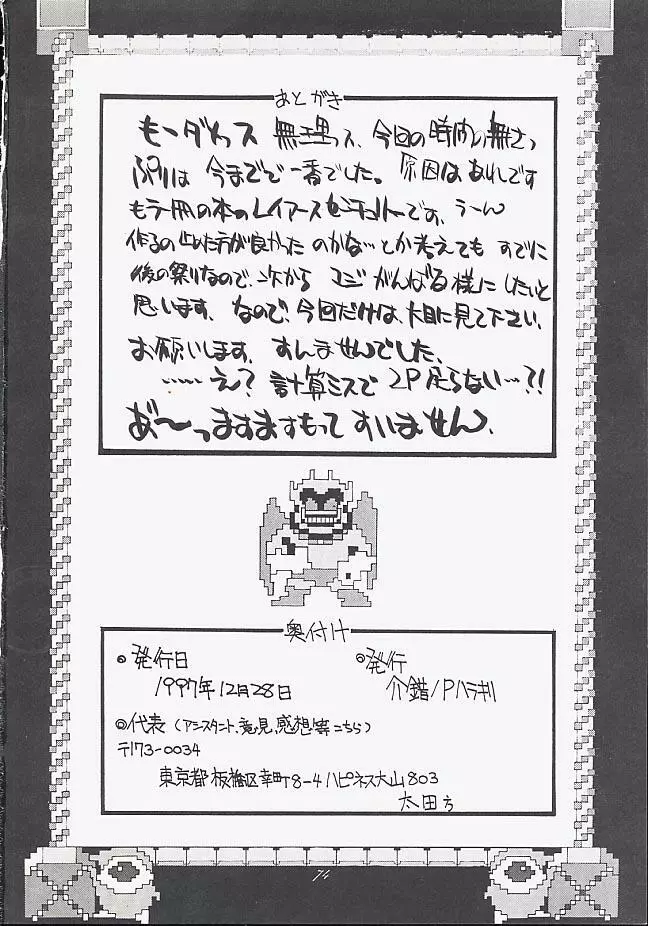 あとがき
もーダメっス 無理っス、今回の時間の無さっ
ぷりは 今までで一番でした。原因はあれです
もう一冊の本のレイアース です、うーん
作るの止めた方が良かった のかな…とか考えても すでに
後の祭りなので、次から マジ がんばる様に したいと
思います、なので、今回だけは、大目に見て下さい、
お願いします、すんませんでした、
……え？計算ミスで 2P足らない…？！
あ〜っますますもって すいません、
奥付け
◎発行日
1997年12月28日
◎発行
介錯/Pハラキリ
◎代表（アシスタント、意見、感想等こちら）
〒173-0034
東京都板橋区幸町8-4ハピネス大山803
太田方
74